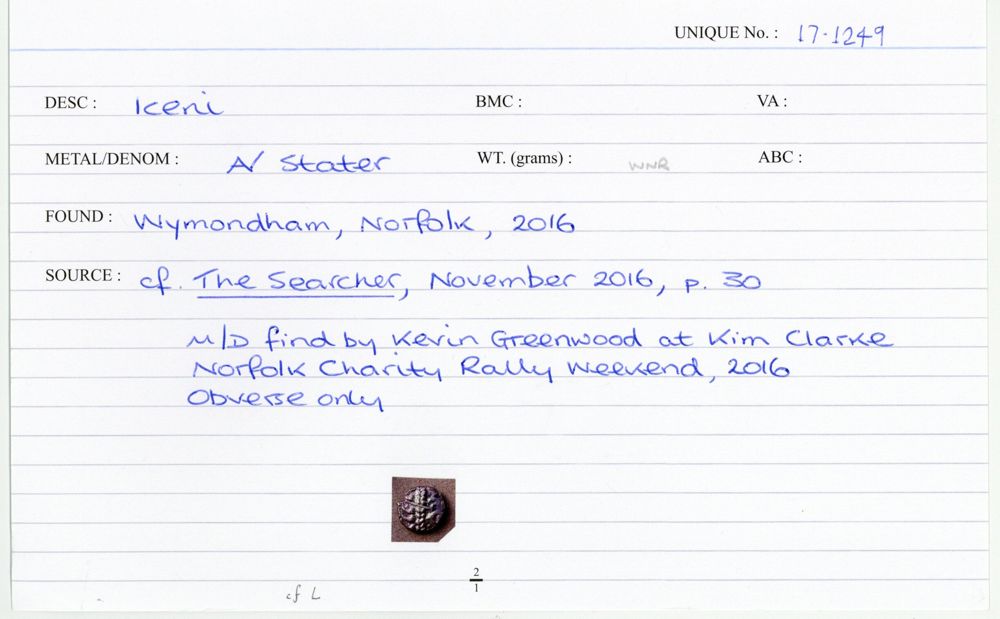 UNIQUE No. : 17.1249
DESC : Iceni BMC : VA :
METAL/DENOM : A/ Stater WT. (grams) : WNR ABC :
FOUND : Wymondham, Norfolk, 2016
SOURCE : cf. The Searcher, November 2016, p. 30
M/D find by Kevin Greenwood at Kim Clarke
Norfolk Charity Rally Weekend, 2016
Obverse only
2
1
cf L